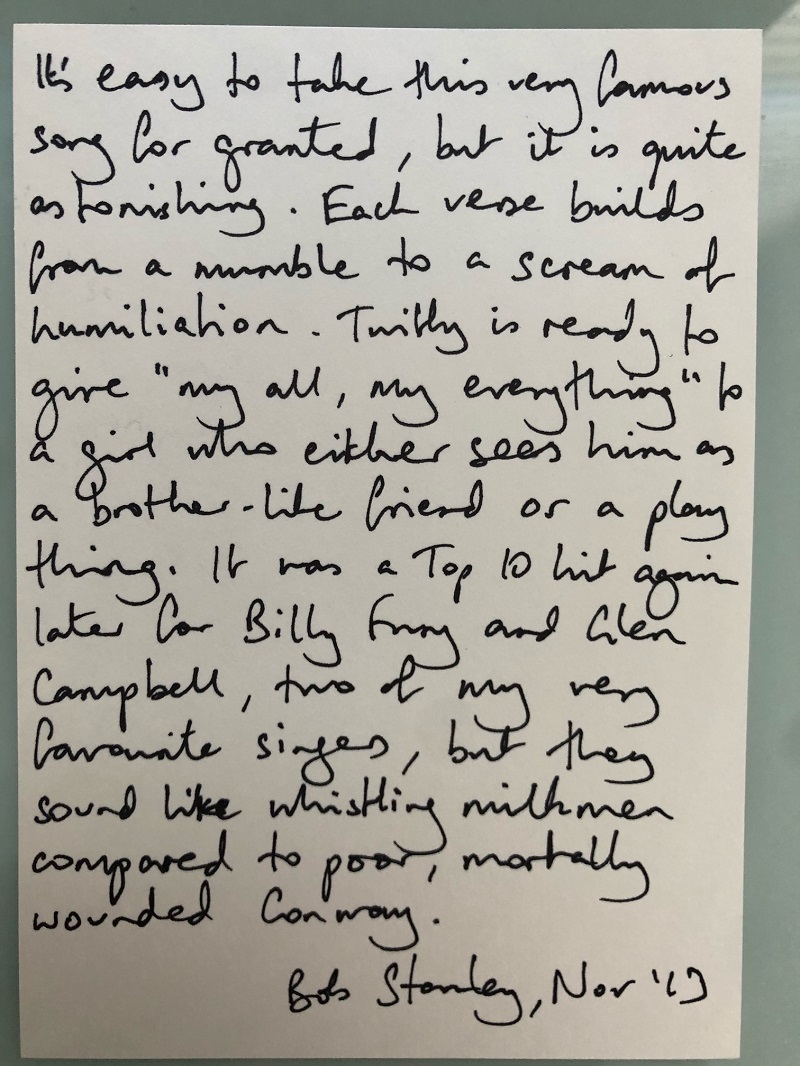 It's easy to take this very famous
song for granted, but it is quite
astonishing. Each verse builds
from a mumble to a scream of
humiliation. Twitty is ready to
give "my all, my everything" to
a girl who either sees him as
a brother-like friend or a play
thing. It was a Top 10 hit again
later for Billy Fury and Glen
Campbell, two of my very
favourite singers, but they
sound like whistling milkmen
compared to poor, mortally
wounded Conway.
Bob Stanley, Nov '19